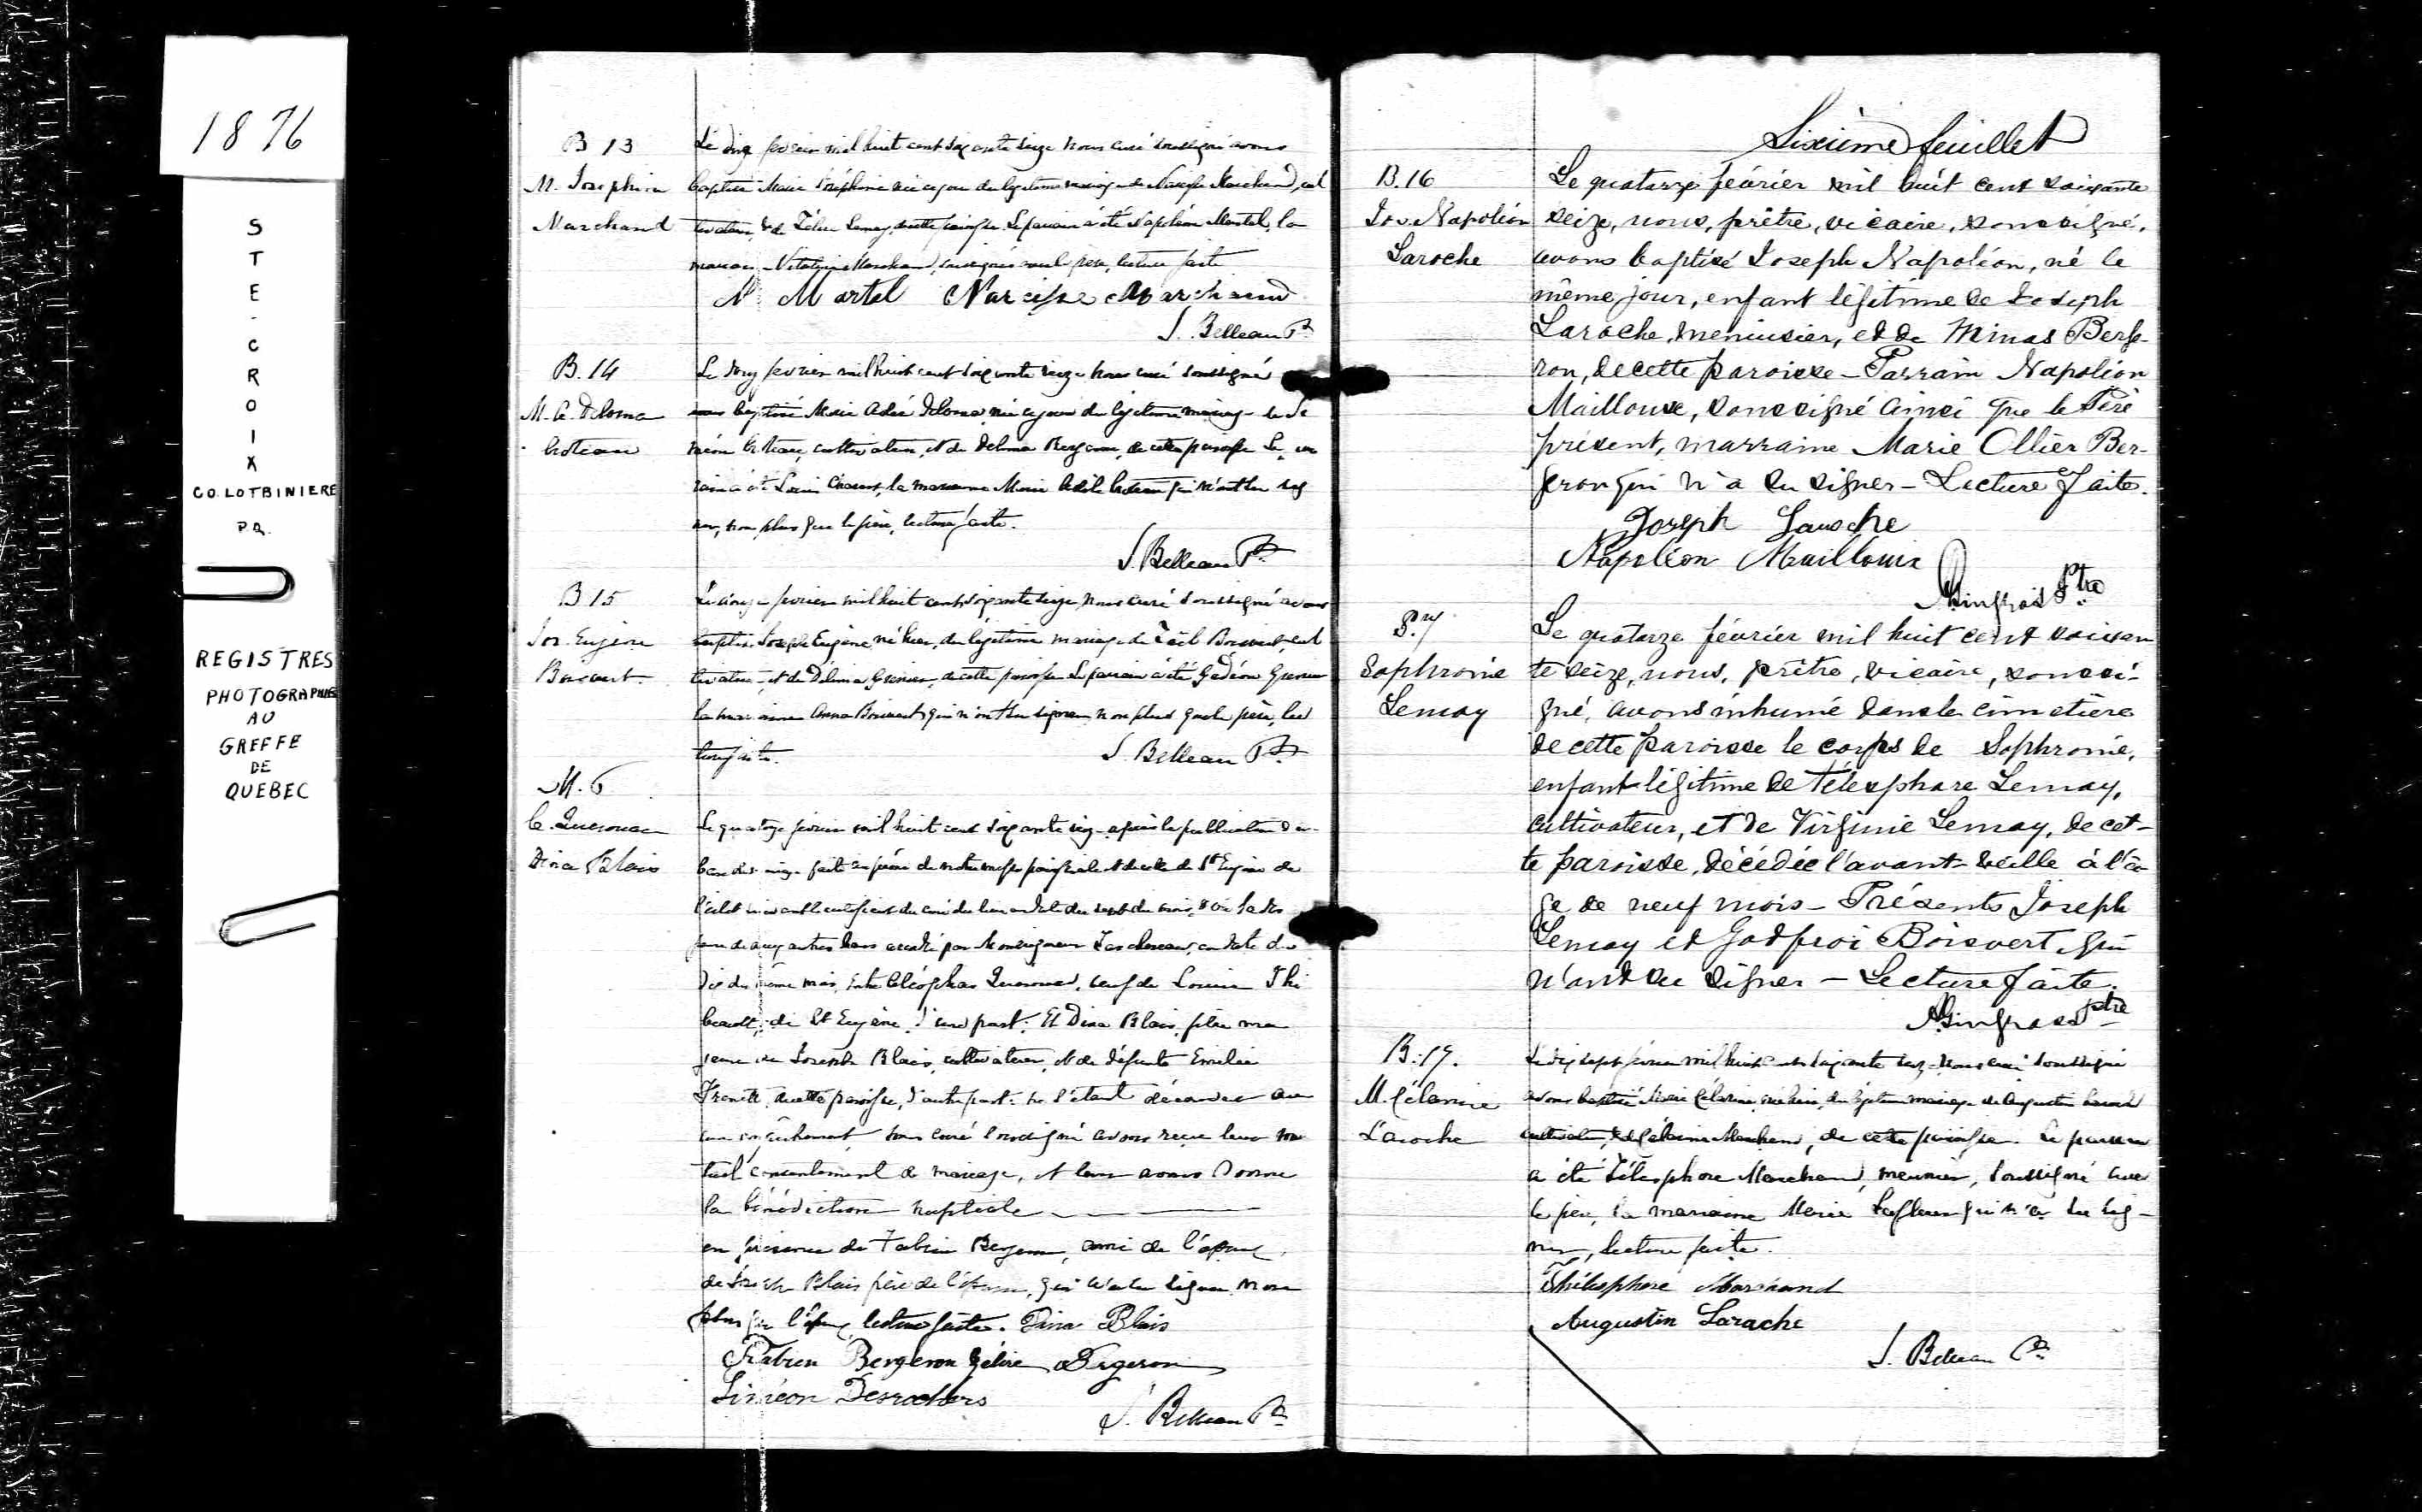 1876
STE-CROIX
CO. LOTBINIERE
P.Q.
REGISTRES
PHOTOGRAPHIES
AU
GREFFE
DE
QUEBEC
B 13
M. Josephine
Marchand
Le dix fevrier mil huit cent soixante seize nous curé soussigné avons
baptisé Marie Joséphine née ce jour du légitime mariage de Narcisse Marchand, cul
tivateur, & de Lemay, de cette paroisse. Le parrain a été Napoléon Martel, la
marraine Marchand, soussignés avec le père, lecture faite
N Martel Narcisse Marchand
S. Belleau Ptre
B. 14
M. C. Deloma
Croteau
Le fevrier mil huit cent soixante seize nous curé soussigné
avons baptisé Marie née ce jour du légitime mariage de Si
méon Croteau, cultivateur, et de Bergeron, de cette paroisse Le par
rain a été la marraine Marie Croteau qui n'ont su sig
ner, non plus que le père, lecture faite.
S. Belleau Ptre
B 15
Jos. Eugène
Boisvert
Le onze fevrier mil huit cent soixante seize, nous curé soussigné avons
baptisé Joseph Eugène né hier, du légitime mariage de Boisvert, cul
tivateur, et de Délima Grenier, de cette paroisse Le parrain a été Gédéon Grenier
la marraine Anna Boisvert qui n'ont su signer non plus que le père, lec
ture faite.
S. Belleau Ptre
M. 6
C.
Dina Blais
Le quatorze fevrier mil huit cent soixante seize après la publication d'un
ban de mariage faite au prône de notre messe paroissiale et de celle de St Eugène de
certificat du curé du lieu en date du sept du mois,
de deux autres bans accordée par Monseigneur Taschereau, en date du
dix du même mois, entre Cléophas veuf de Louise Thi
beault, de St Eugène, d'une part; Et Dina Blais, fille ma
jeure de Joseph Blais, cultivateur, et de défunte Emilie
de cette paroisse, d'autre part; ne s'étant découvert au
cun empêchement, nous curé soussigné avons reçu leur mu
tuel consentement de mariage, et leur avons donné
la bénédiction nuptiale
en présence de Fabien Bergeron, ami de l'époux,
de Joseph Blais père de l'épouse, qui n'a su signer non
plus que l'époux, lecture faite. Dina Blais
Fabien Bergeron Bergeron
Siméon Desrochers
S. Belleau Ptre
Sixième feuillet
B. 16
Jos. Napoléon
Laroche
Le quatorze février mil huit cent soixante
seize, nous, prêtre, vicaire, soussigné,
avons baptisé Joseph Napoléon, né le
même jour, enfant légitime de Joseph
Laroche, menuisier, et de Minas Berge-
ron, de cette paroisse - Parrain Napoléon
Mailloux, soussigné ainsi que le Père
présent, marraine Marie Ollier Ber-
geron qui n'a su signer - Lecture faite.
Joseph Laroche
Napoléon Mailloux
Ptre
Sophronie
Lemay
Le quatorze février mil huit cent soixan
te seize, nous, prêtre, vicaire, soussi-
gné, avons inhumé dans le cimetière
de cette paroisse le corps de Sophronie,
enfant légitime de Télesphore Lemay,
cultivateur, et de Virginie Lemay, de cet-
te paroisse, décédée l'avant-veille à l'â
ge de neuf mois - Présents Joseph
Lemay et Godfroi Boisvert, qui
n'ont su signer - Lecture faite.
Ptre
B. 17.
M. Célanire
Laroche
Le dix sept fevrier mil huit cent soixante seize nous curé soussigné
avons baptisé Marie Célanire, née hier, du légitime mariage de Augustin Laroche
cultivateur, & de Célanire Marchand, de cette paroisse. Le parrain
a été Télesphore Marchand, meunier, soussigné avec
le père, la marraine Marie Lafleur qui n'a su sig-
ner, lecture faite.
Thélesphore Marchand
Augustin Laroche
S. Belleau Ptre